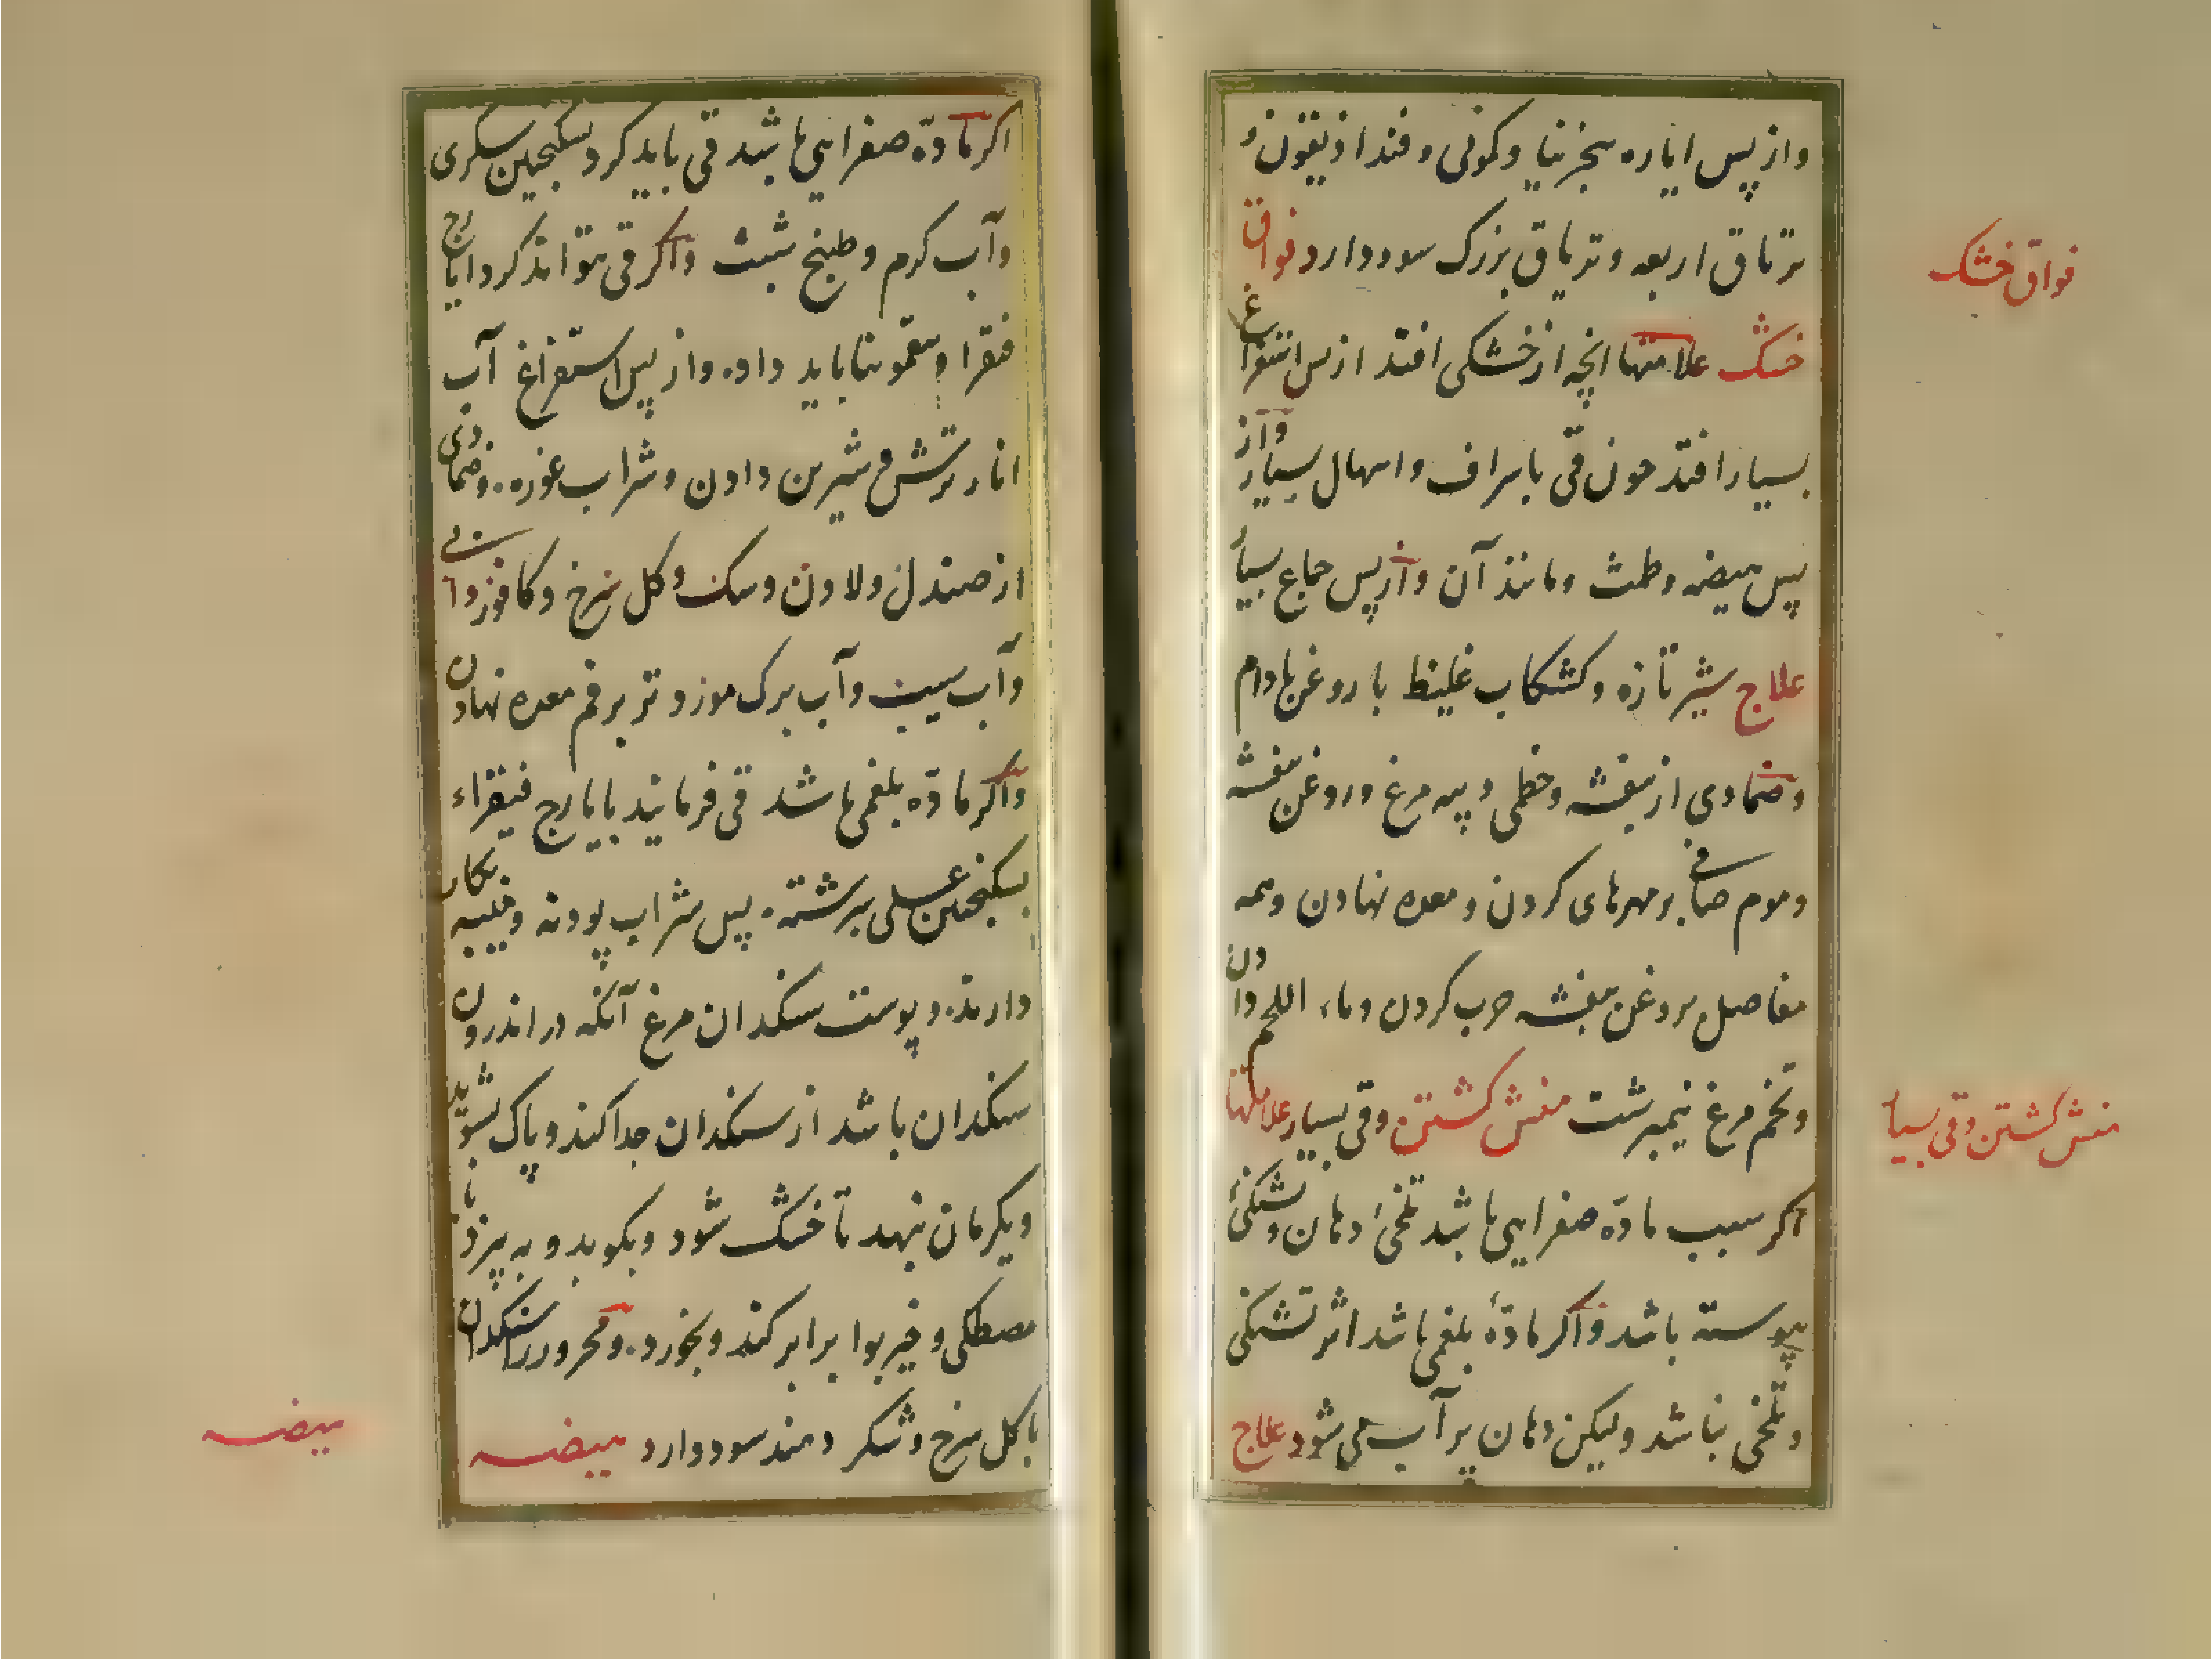 واز پس ایاره سنجرنیا وکمونی و فنداذیقون و
تریاق اربعه و تریاق بزرک سود دارد فواق
فواق خشک
خشک علامتها انچه از خشکی افتد از پس استفراغ
بسیار افتد چون قی باسراف واسهال بسیار واز
پس هیضه وطمث ومانند آن واز پس جماع بسیار
علاج شیر تازه وکشکاب غلیظ با روغن بادام
وضمادی از بنفشه وخطمی و پیه مرغ وروغن بنفشه
وموم صافی بر مهرهای کردن ومعده نهادن وهمه
مفاصل بروغن بنفشه چرب کردن وماء اللحم دادن
وتخم مرغ نیمبرشت منش کشتن وقی بسیار علامتها
منش کشتن وقی بسیا
اکر سبب مادّه صفرایی باشد تلخیٔ دهان وتشنکیٔ
پیوسته باشد واکر مادّهٔ بلغمی باشد اثر تشنکی
وتلخی نباشد ولیکن دهان پر آب می شود علاج
اکر مادّه صفرایی باشد قی باید کرد بسکنجبین سکری
وآب کرم وطبیخ شبث واکر قی نتواند کرد ایارج
فیقرا وسقمونیا باید داد. واز پس استفراغ آب
انار ترش و شیرین دادن وشراب غوره. وضمادی
از صندل ولادن وسک وکل سرخ وکافور وآ بی
وآب سیب وآب برک مورد تر بر فم معده نهادن
واکر مادّه بلغمی باشد قی فرمایند بایارج فیقراء
بسکنجبین عسلی سرشته. پس شراب پودنه ومیبه بکار
دارند. و پوست سنکدان مرغ آنکه در اندرون
سنکدان باشد از سنکدان جدا کند وپاک بشوید
ویکرمان بنهد تا خشک شود وبکوبد و به بیزد با
مصطکی و خیربوا برابر کند وبخورد. ومحرور را سنکدان
با کل سرخ وشکر دهند سود دارد هیضه
هیضه